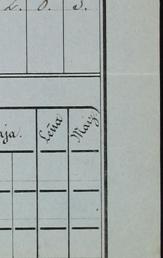 2. 0. 3.
ja. Leña Maiz